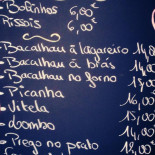 Bolinhos 6,00€
Rissois 6,00€
- Bacalhau á lagareiro 14,00
- Bacalhau á brás 11,00
- Bacalhau no forno
- Picanha 16,00
- Vitela 15,00
- Lombo
- Prego no prato